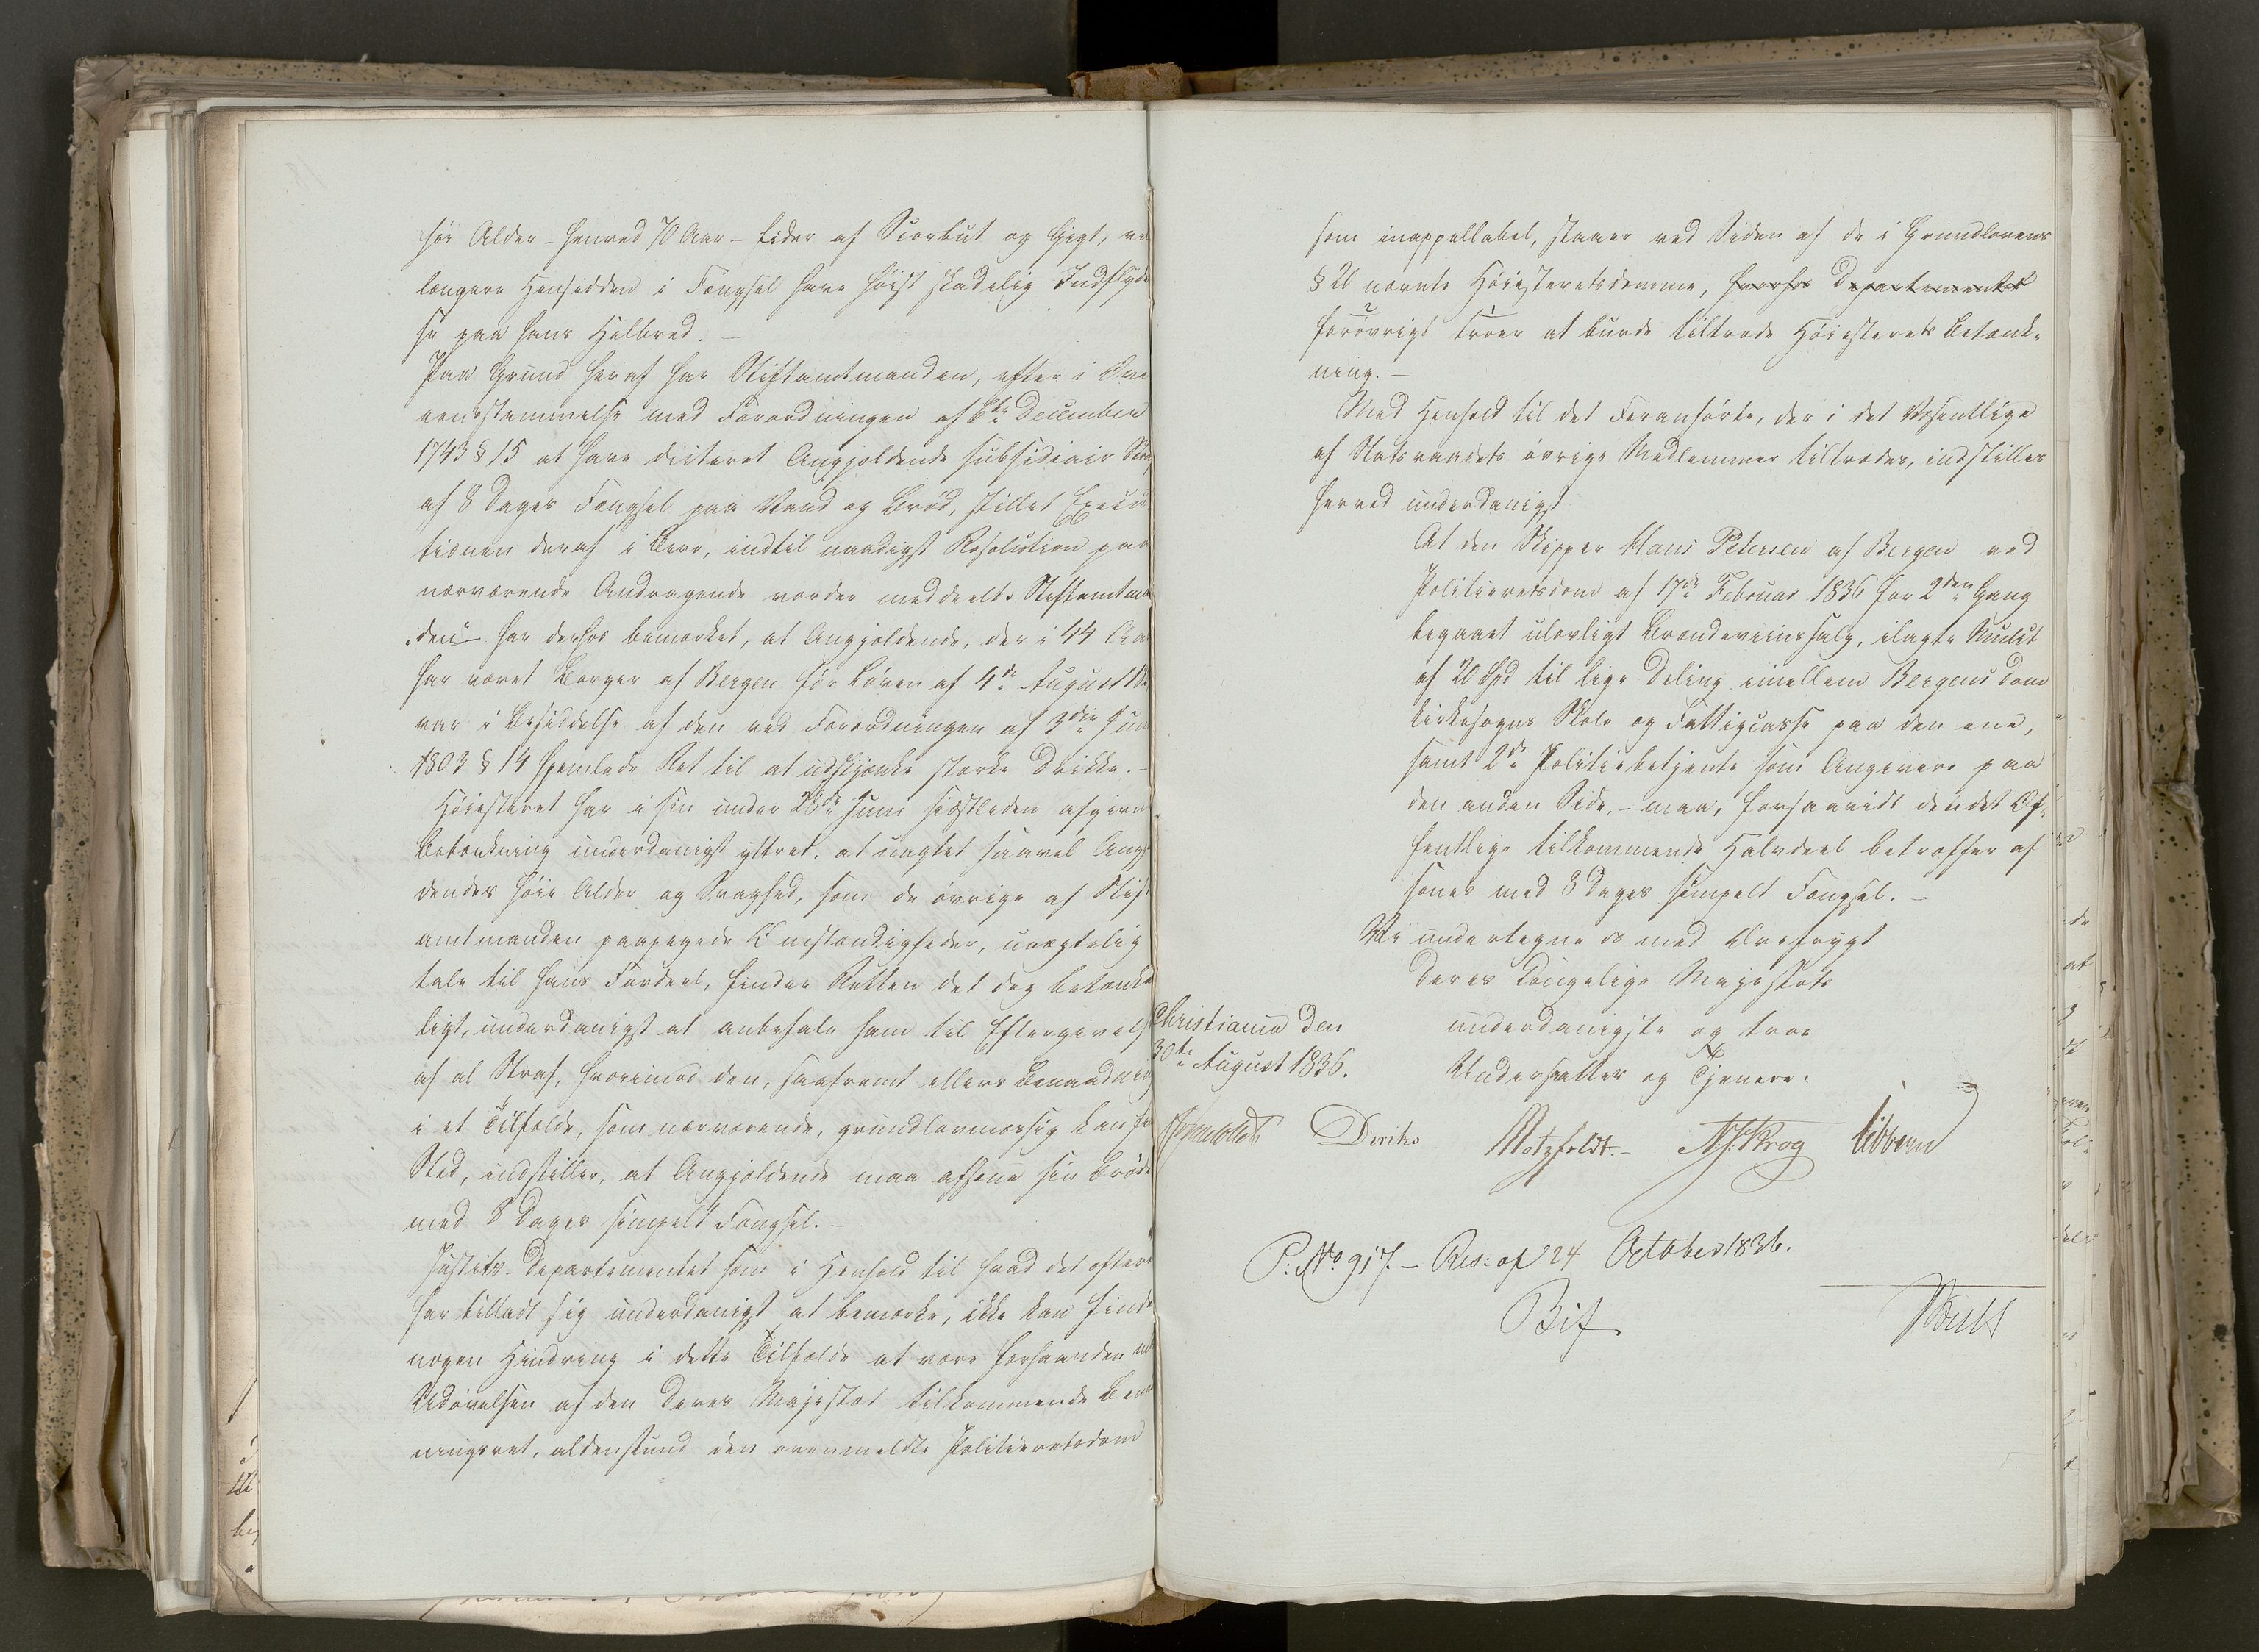 høi Alder - henved 70 Aar - lider af Scorbut og Gigt, vil
længere Hensidden i Fængsel have høist skadelig Indflydel
se paa hans Helbred. -
Paa Grund heraf har Stiftamtmanden, efter i Ove
eensstemmelse med Forordningen af 6te December
1743 § 15 at have dicteret Angjeldende subsidiair Straf
af 8 Dages Fængsel paa Vand og Brød, stillet Execu
tionen deraf i Bero, indtil naadigst Resolution paa
nærværende Andragende vorder meddeelt. Stiftamtman
den har derhos bemærket, at Angjeldende, der i 44 Aar
har været Borger af Bergen før Loven af 4de August 18
var i Besiddelse af den ved Forordningen af 3die Juni
1803 § 14 hjemlede Ret til at udskjænke stærke Drikke. -
Høiesteret har i sin under 28de Juni sidstleden afgivne
Betænkning underdanigst yttret, at uagtet saavel Angjel
dendes høie Alder og Svaghed, som de øvrige af Stift
amtmanden paapegede Omstændigheder, unægtelig
tale til hans Fordeel, finder Retten det dog betænke
ligt, underdanigst at anbefale ham til Eftergivelse
af al Straf, hvorimod den, saafremt ellers Benaadning
i et Tilfælde, som nærværende, grundlovmæssig kan finde
Sted, indstiller, at Angjeldende maa afsone sin Brøde
med 8 Dages simpelt Fængsel. -
Justits-Departementet som i Henhold til hvad det oftere
har tilladt sig underdanigst at bemærke, ikke kan finde
nogen Hindring i dette Tilfælde at være forhaanden ved
Udøvelsen af den Deres Majestæt tilkommende Benaad
ningsret, aldenstund den ovenmeldte Politieretsdom
som inappellabel, staaer ved Siden af de i Grundlovens
§ 20 nævnte Høiesteretsdomme, hvorhos Departementet
forøvrigt troer at burde tiltræde Høiesterets Betænk-
ning. -
Med Henhold til det Foranførte, der i det Væsentlige
af Statsraadets øvrige Medlemmer tiltrædes, indstilles
herved underdanigst
At den Skipper Hans Petersen af Bergen ved
Politieretsdom af 17de Februar 1836 for 2den Gang
begaaet ulovligt Brændeviinssalg, ilagte Mulct
af 20 Spd til lige Deling imellem Bergens Dom
kirkesogns Skole og Fattigcasse paa den ene,
samt 2de Politiebetjente som Angivere paa
den anden Side, - maa, forsaavidt den det Of-
fentlige tilkommende Halvdeel betræffer af
sones med 8 Dages simpelt Fængsel. -
Vi undertegne os med Ærefrygt
Deres Kongelige Majestæts
underdanigste og troe
Undersatter og Tjenere.
Christiania den
30te August 1836.
Diriks Motzfeldt. - Krog Vibben
P: No 917. - Res: af 24 October 1836.
Bif